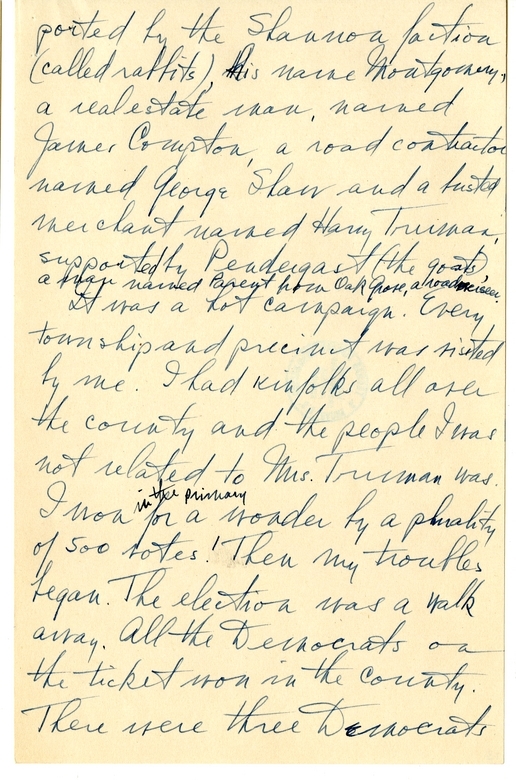 ported by the Shannon faction
(called rabbits), his name Montgomery,
a real estate man, named
James Compton, a road contractor
named George Shaw and a busted
merchant named Harry Truman,
supported by Pendergast (the goats),
a man named Parent from Oak Grove, a road overseer.
It was a hot campaign. Every
township and precinct was visited
by me. I had kinfolks all over
the county and the people I was
not related to Mrs. Truman was.
in the primary
I won for a wonder by a plurality
of 500 votes! Then my troubles
began. The election was a walk
away. All the Democrats on
the ticket won in the county.
There were three Democrats